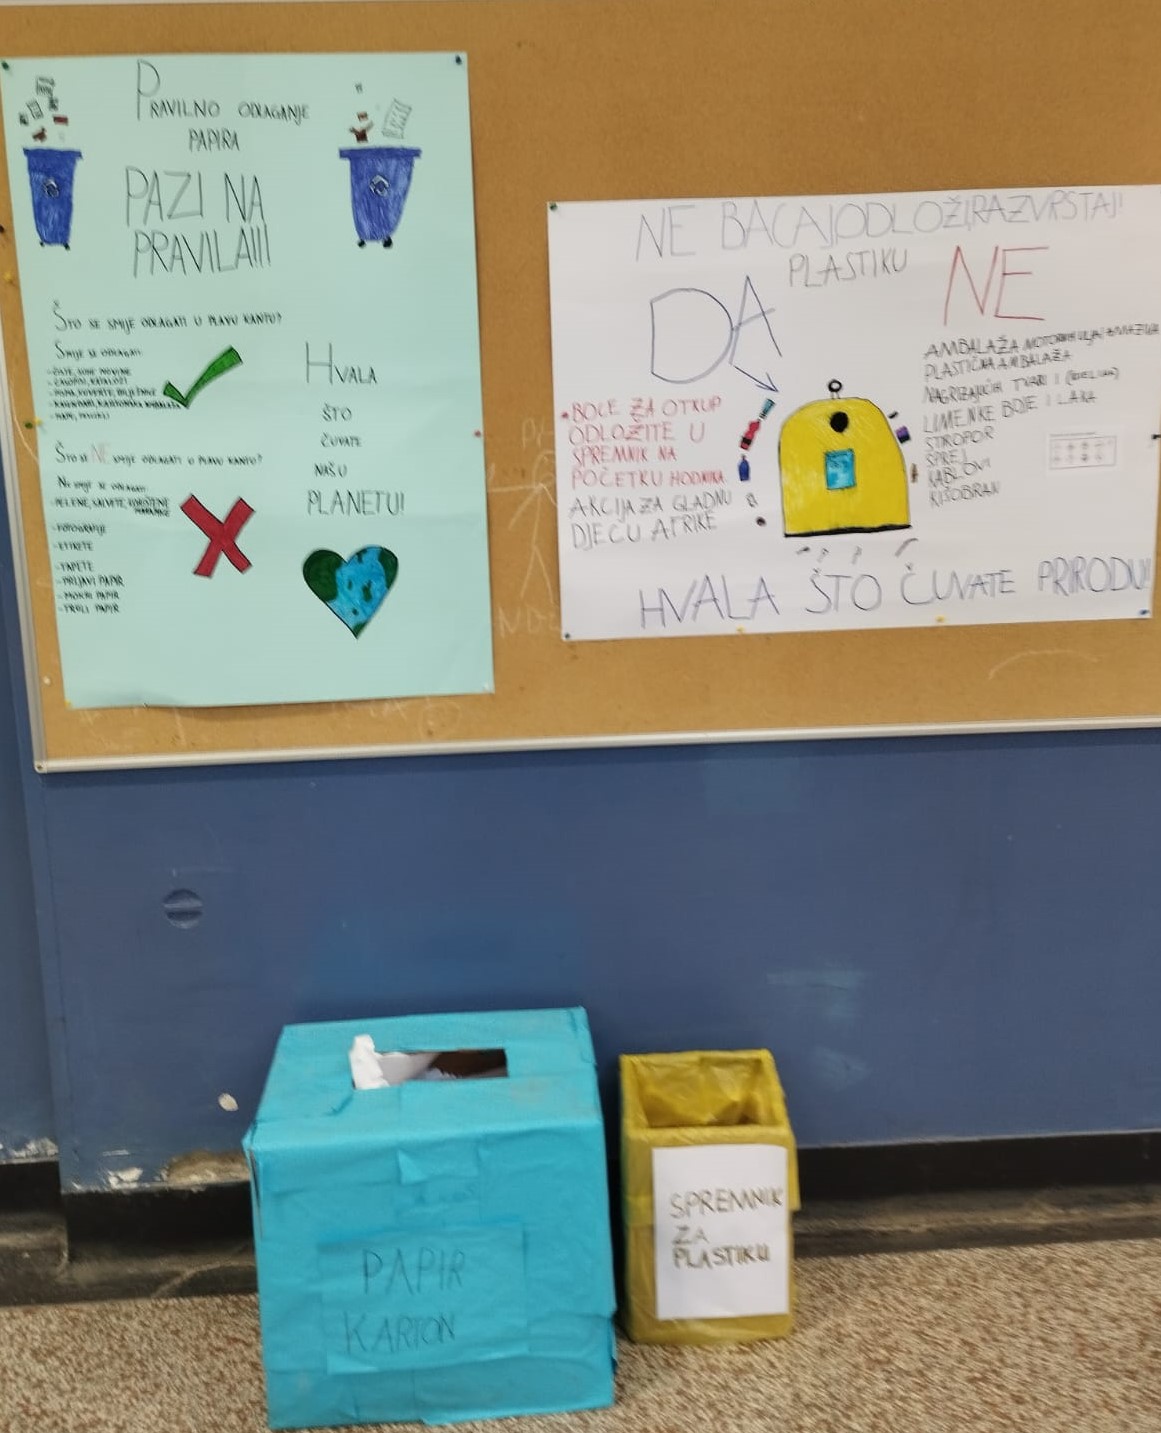 PRAVILNO ODLAGANJE
PAPIRA
PAZI NA
PRAVILA!!!
ŠTO SE SMIJE ODLAGATI U PLAVU KANTU?
SMIJE SE ODLAGATI
KATALOZI
HVALA
ŠTO
ČUVATE
NAŠU
PLANETU!
ŠTO SE NE SMIJE ODLAGATI U PLAVU KANTU?
NE SMIJE SE ODLAGATI
-PELENE, SALVETE, KORIŠTENE
MARAMICE
-FOTOGRAFIJE
-ETIKETE
-TAPETE
-PRLJAVI PAPIR
-MOKRI PAPIR
-TRULI PAPIR
NE BACAJ ODLOŽI, RAZVRSTAJ!
PLASTIKU
DA
NE
•BOCE ZA OTKUP
ODLOŽITE U
SPREMNIK NA
POČETKU HODNIKA
AKCIJA ZA GLADNU
DJECU AFRIKE
AMBALAŽA MOTORNIH ULJA I MAZIVA
PLASTIČNA AMBALAŽA
NAGRIZAJUĆIH TVARI I
LIMENKE BOJE I LAKA
STIROPOR
SPREJ
KABLOVI
KIŠOBRAN
HVALA ŠTO ČUVATE PRIRODU!
PAPIR
KARTON
SPREMNIK
ZA
PLASTIKU